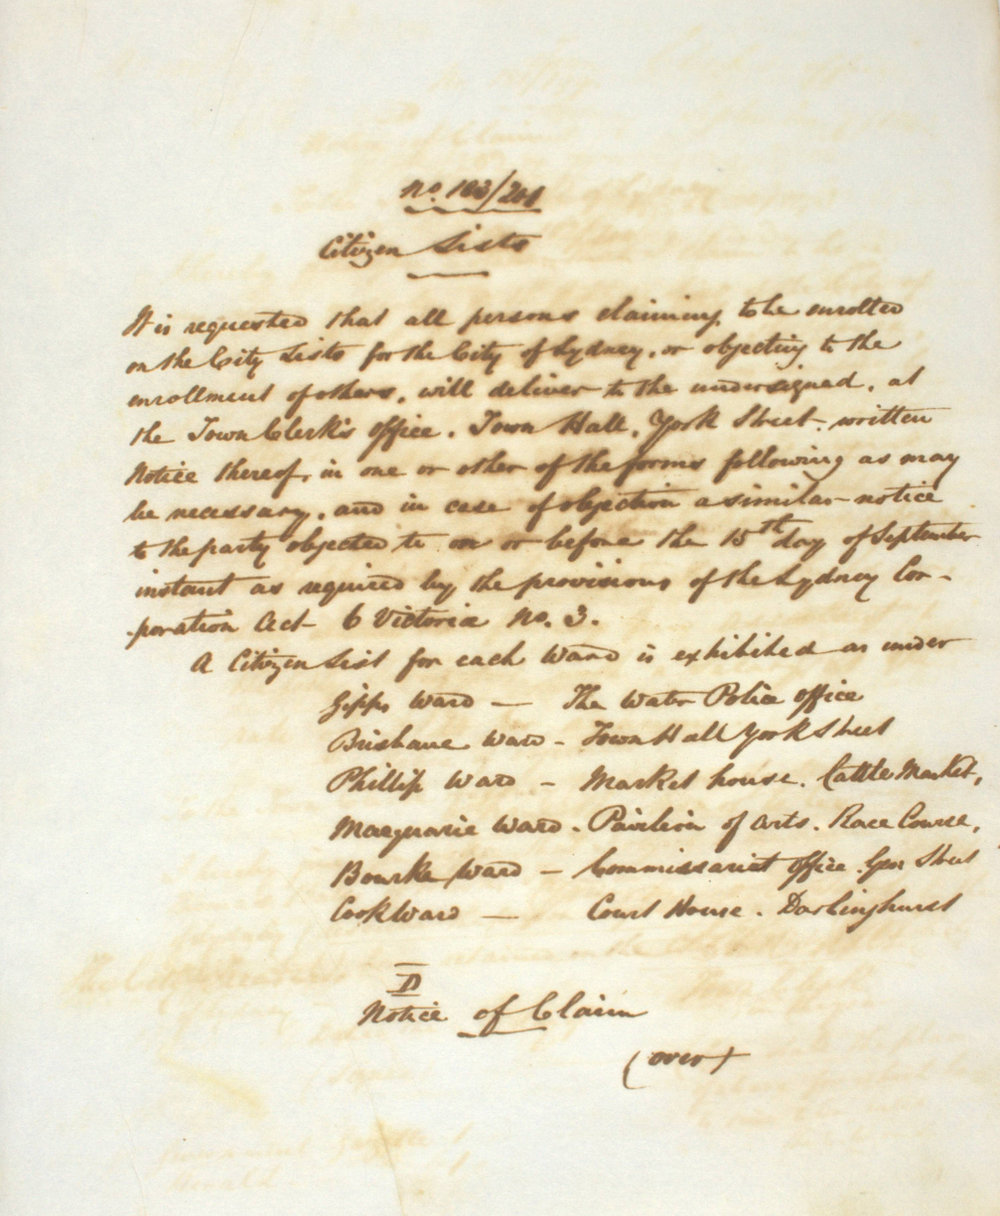 No. 103/201
Citizen Lists
It is requested that all persons claiming to be enrolled
on the City Lists for the City of Sydney, or objecting to the
enrollment of others, will deliver to the undersigned, at
the Town Clerk's Office, Town Hall, York Street, written
Notice thereof, in one or other of the forms following as may
be necessary, and in case of objection a similar notice
to the party objected to on or before the 15th day of September
instant as required by the provisions of the Sydney Cor-
-poration Act 6 Victoria No. 3.
A Citizen List for each Ward is exhibited as under
Gipps Ward — The Water Police Office
Brisbane Ward - Town Hall York Street
Phillip Ward - Market house. Cattle Market,
Macquarie Ward - Pavilion of Arts. Race Course,
Bourke Ward — Commissariat Office. Geo Street
Cook Ward — Court House. Darlinghurst
D
Notice of Claim
(over)